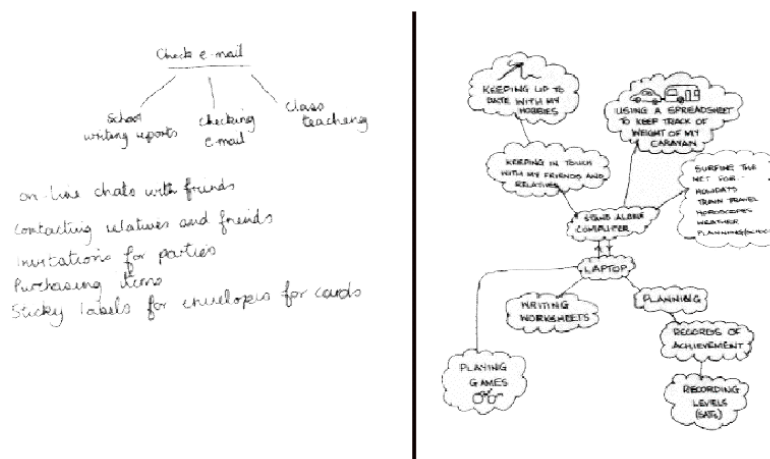 Check e-mail
School
writing reports
checking
e-mail
Class
teaching
on-line chats with friends
contacting relatives and friends
Invitations for parties
Purchasing items
Sticky labels for envelopes for cards
KEEPING UP TO
DATE WITH MY
HOBBIES
USING A SPREADSHEET
TO KEEP TRACK OF
WEIGHT OF MY
CARAVAN
KEEPING IN TOUCH
WITH MY FRIENDS AND
RELATIVES
SURFING THE
NET FOR:-
HOLIDAYS
TRAIN TRAVEL
HOROSCOPES
WEATHER
STAND ALONE
COMPUTER
LAPTOP
WRITING
WORKSHEETS
PLANNING
RECORDS OF
ACHIEVEMENT
PLAYING
GAMES
RECORDING
LEVELS
(SATs)